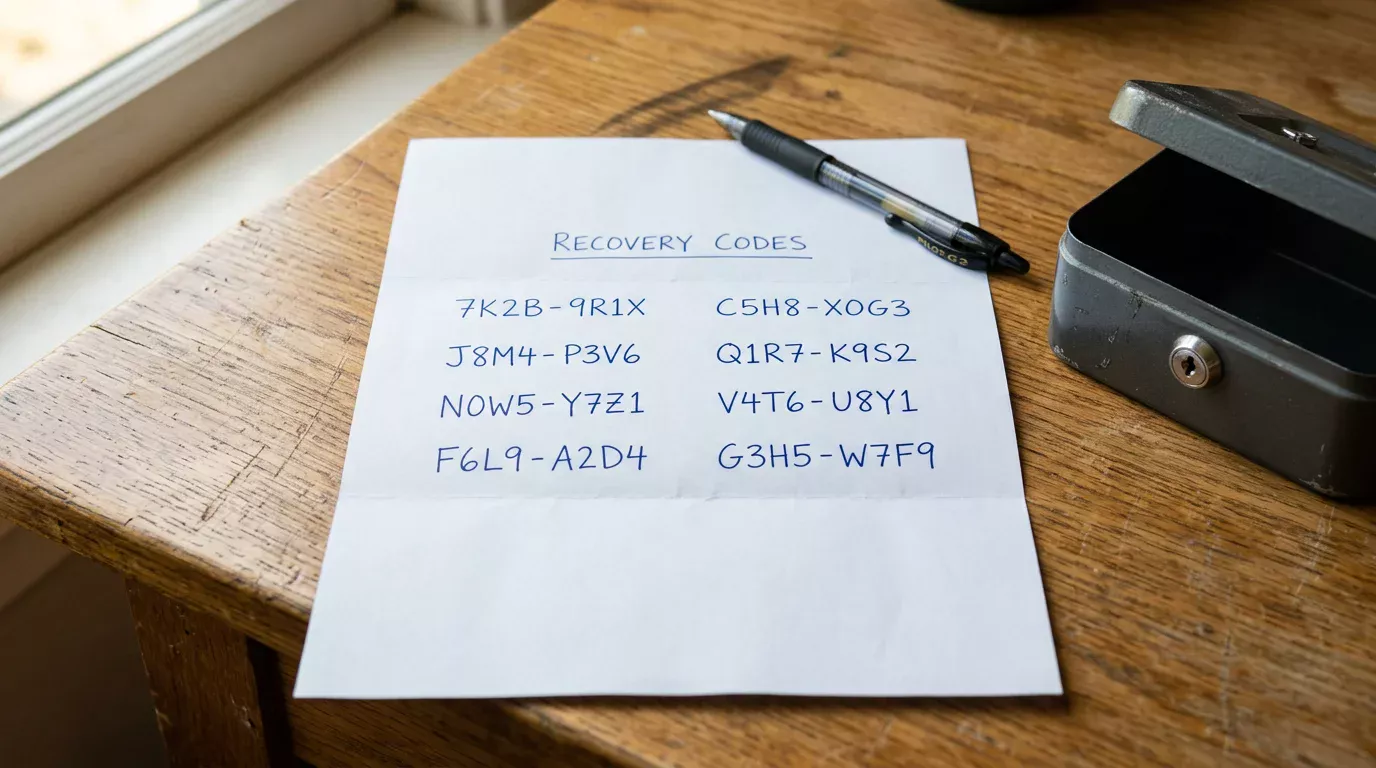 RECOVERY CODES
7K2B-9R1X C5H8-X0G3
J8M4-P3V6 Q1R7-K9S2
N0W5-Y7Z1 V4T6-U8Y1
F6L9-A2D4 G3H5-W7F9
PILOT G2